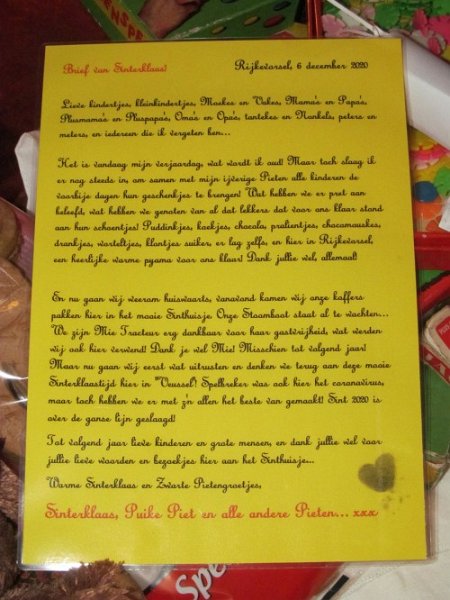 Brief van Sinterklaas!
Rijkevorsel, 6 december 2020
Lieve kindertjes, kleinkindertjes, Moekes en Vakes, Mama's en Papa's,
Plusmama's en Pluspapa's, Oma's en Opa's, tantekes en Nonkels, peters en
meters, en iedereen die ik vergeten ben...
Het is vandaag mijn verjaardag, wat wordt ik oud! Maar toch slaag ik
er nog steeds in, om samen met mijn ijverige Pieten alle kinderen de
voorbije dagen hun geschenkjes te brengen! Wat hebben we er pret aan
beleefd, wat hebben we genoten van al dat lekkers dat voor ons klaar stond
aan hun schoentjes! Puddinkjes, koekjes, chocola, pralientjes, chocomouskes,
drankjes, worteltjes, klontjes suiker, er lag zelfs, en hier in Rijkevorsel,
een heerlijke warme pyama voor ons klaar! Dank jullie wel, allemaal!
En nu gaan wij weerom huiswaarts, vanavond kamen wij onze koffers
pakken hier in het mooie Sinthuisje Onze Stoomboot staat al te wachten...
We zijn Mie Tracteur erg dankbaar voor haar gastvrijheid, wat werden
wij ook hier verwend! Dank je wel Mie! Misschien tot volgend jaar!
Maar nu gaan wij eerst wat uitrusten en denken we terug aan deze mooie
Sinterklaastijd hier in "Veussel! Spelbreker was ook hier het coronavirus,
maar toch hebben we er met z'n allen het beste van gemaakt! Sint 2020 is
over de ganse lijn geslaagd!
Tot volgend jaar lieve kinderen en grote mensen, en dank jullie wel voor
jullie lieve woorden en bezoekjes hier aan het Sinthuisje...
Warme Sinterklaas en Zwarte Pietengroetjes,
Sinterklaas, Puike Piet en alle andere Pieten... xxx